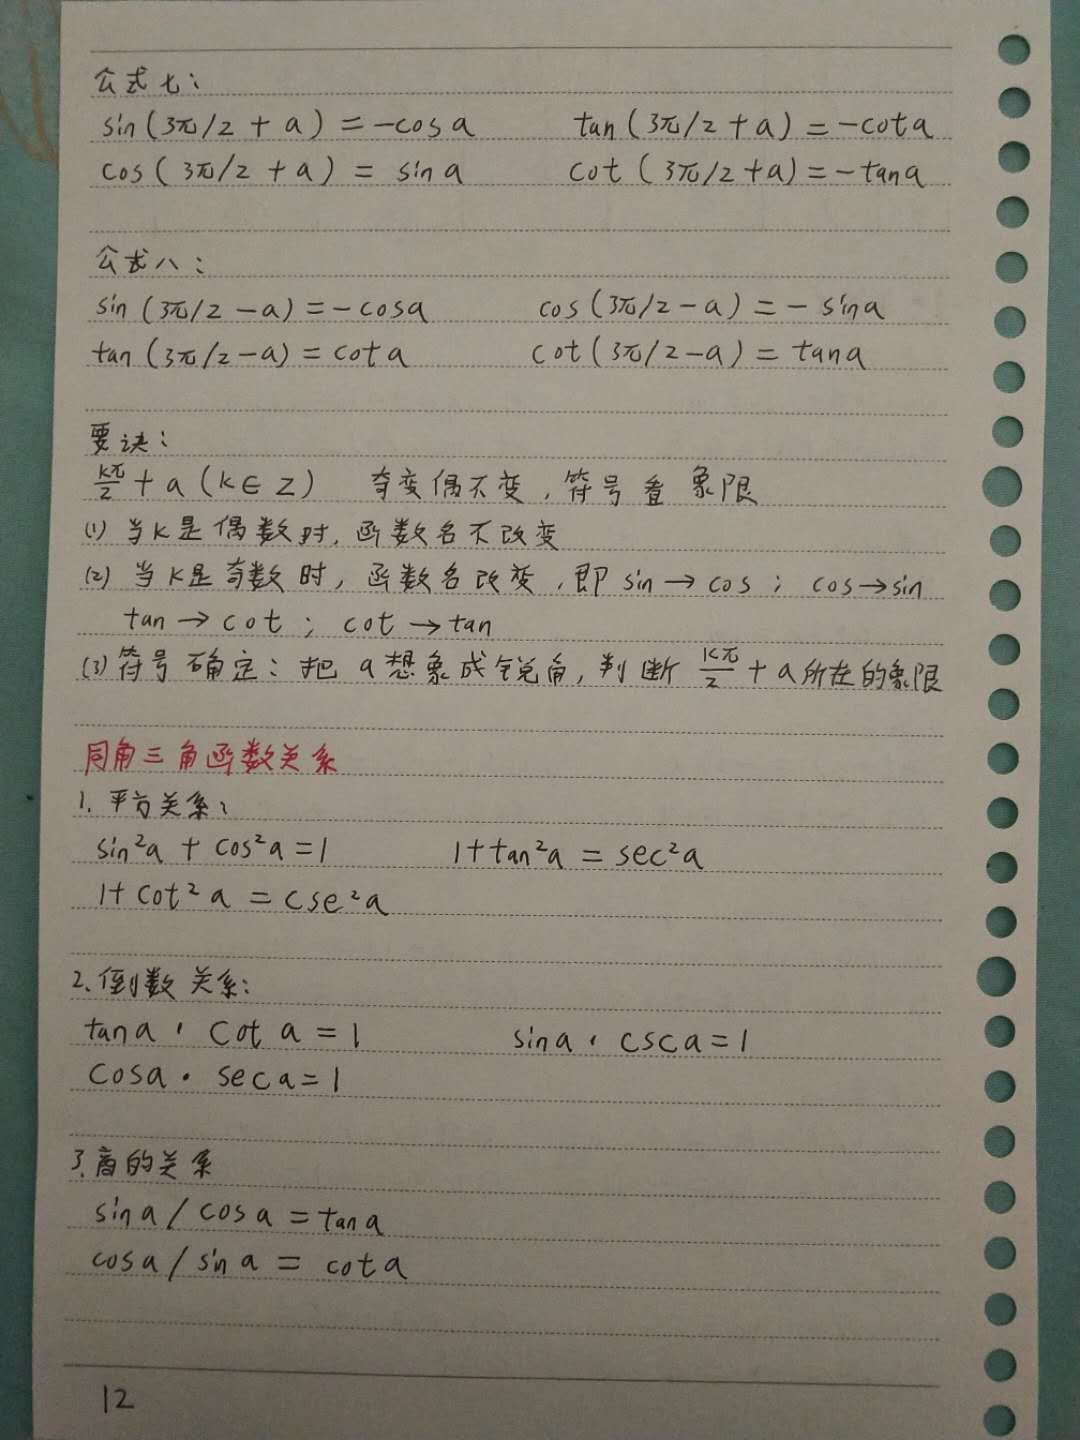 公式七：
sin(3π/2 + a) = -cos a tan(3π/2 + a) = -cot a
cos(3π/2 + a) = sin a cot(3π/2 + a) = -tan a
公式八：
sin(3π/2 - a) = -cos a cos(3π/2 - a) = - sin a
tan(3π/2 - a) = cot a cot(3π/2 - a) = tan a
要诀：
kπ/2 + a (k∈Z) 奇变偶不变，符号看象限
(1) 当k是偶数时，函数名不改变
(2) 当k是奇数时，函数名改变，即 sin→cos；cos→sin
tan→cot；cot→tan
(3) 符号确定：把a想象成锐角，判断 kπ/2 + a所在的象限
同角三角函数关系
1. 平方关系：
sin²a + cos²a = 1 1+tan²a = sec²a
1+cot²a = cse²a
2. 倒数关系：
tan a · cot a = 1 sin a · csc a = 1
cos a · sec a = 1
3. 商的关系
sin a / cos a = tan a
cos a / sin a = cot a
12